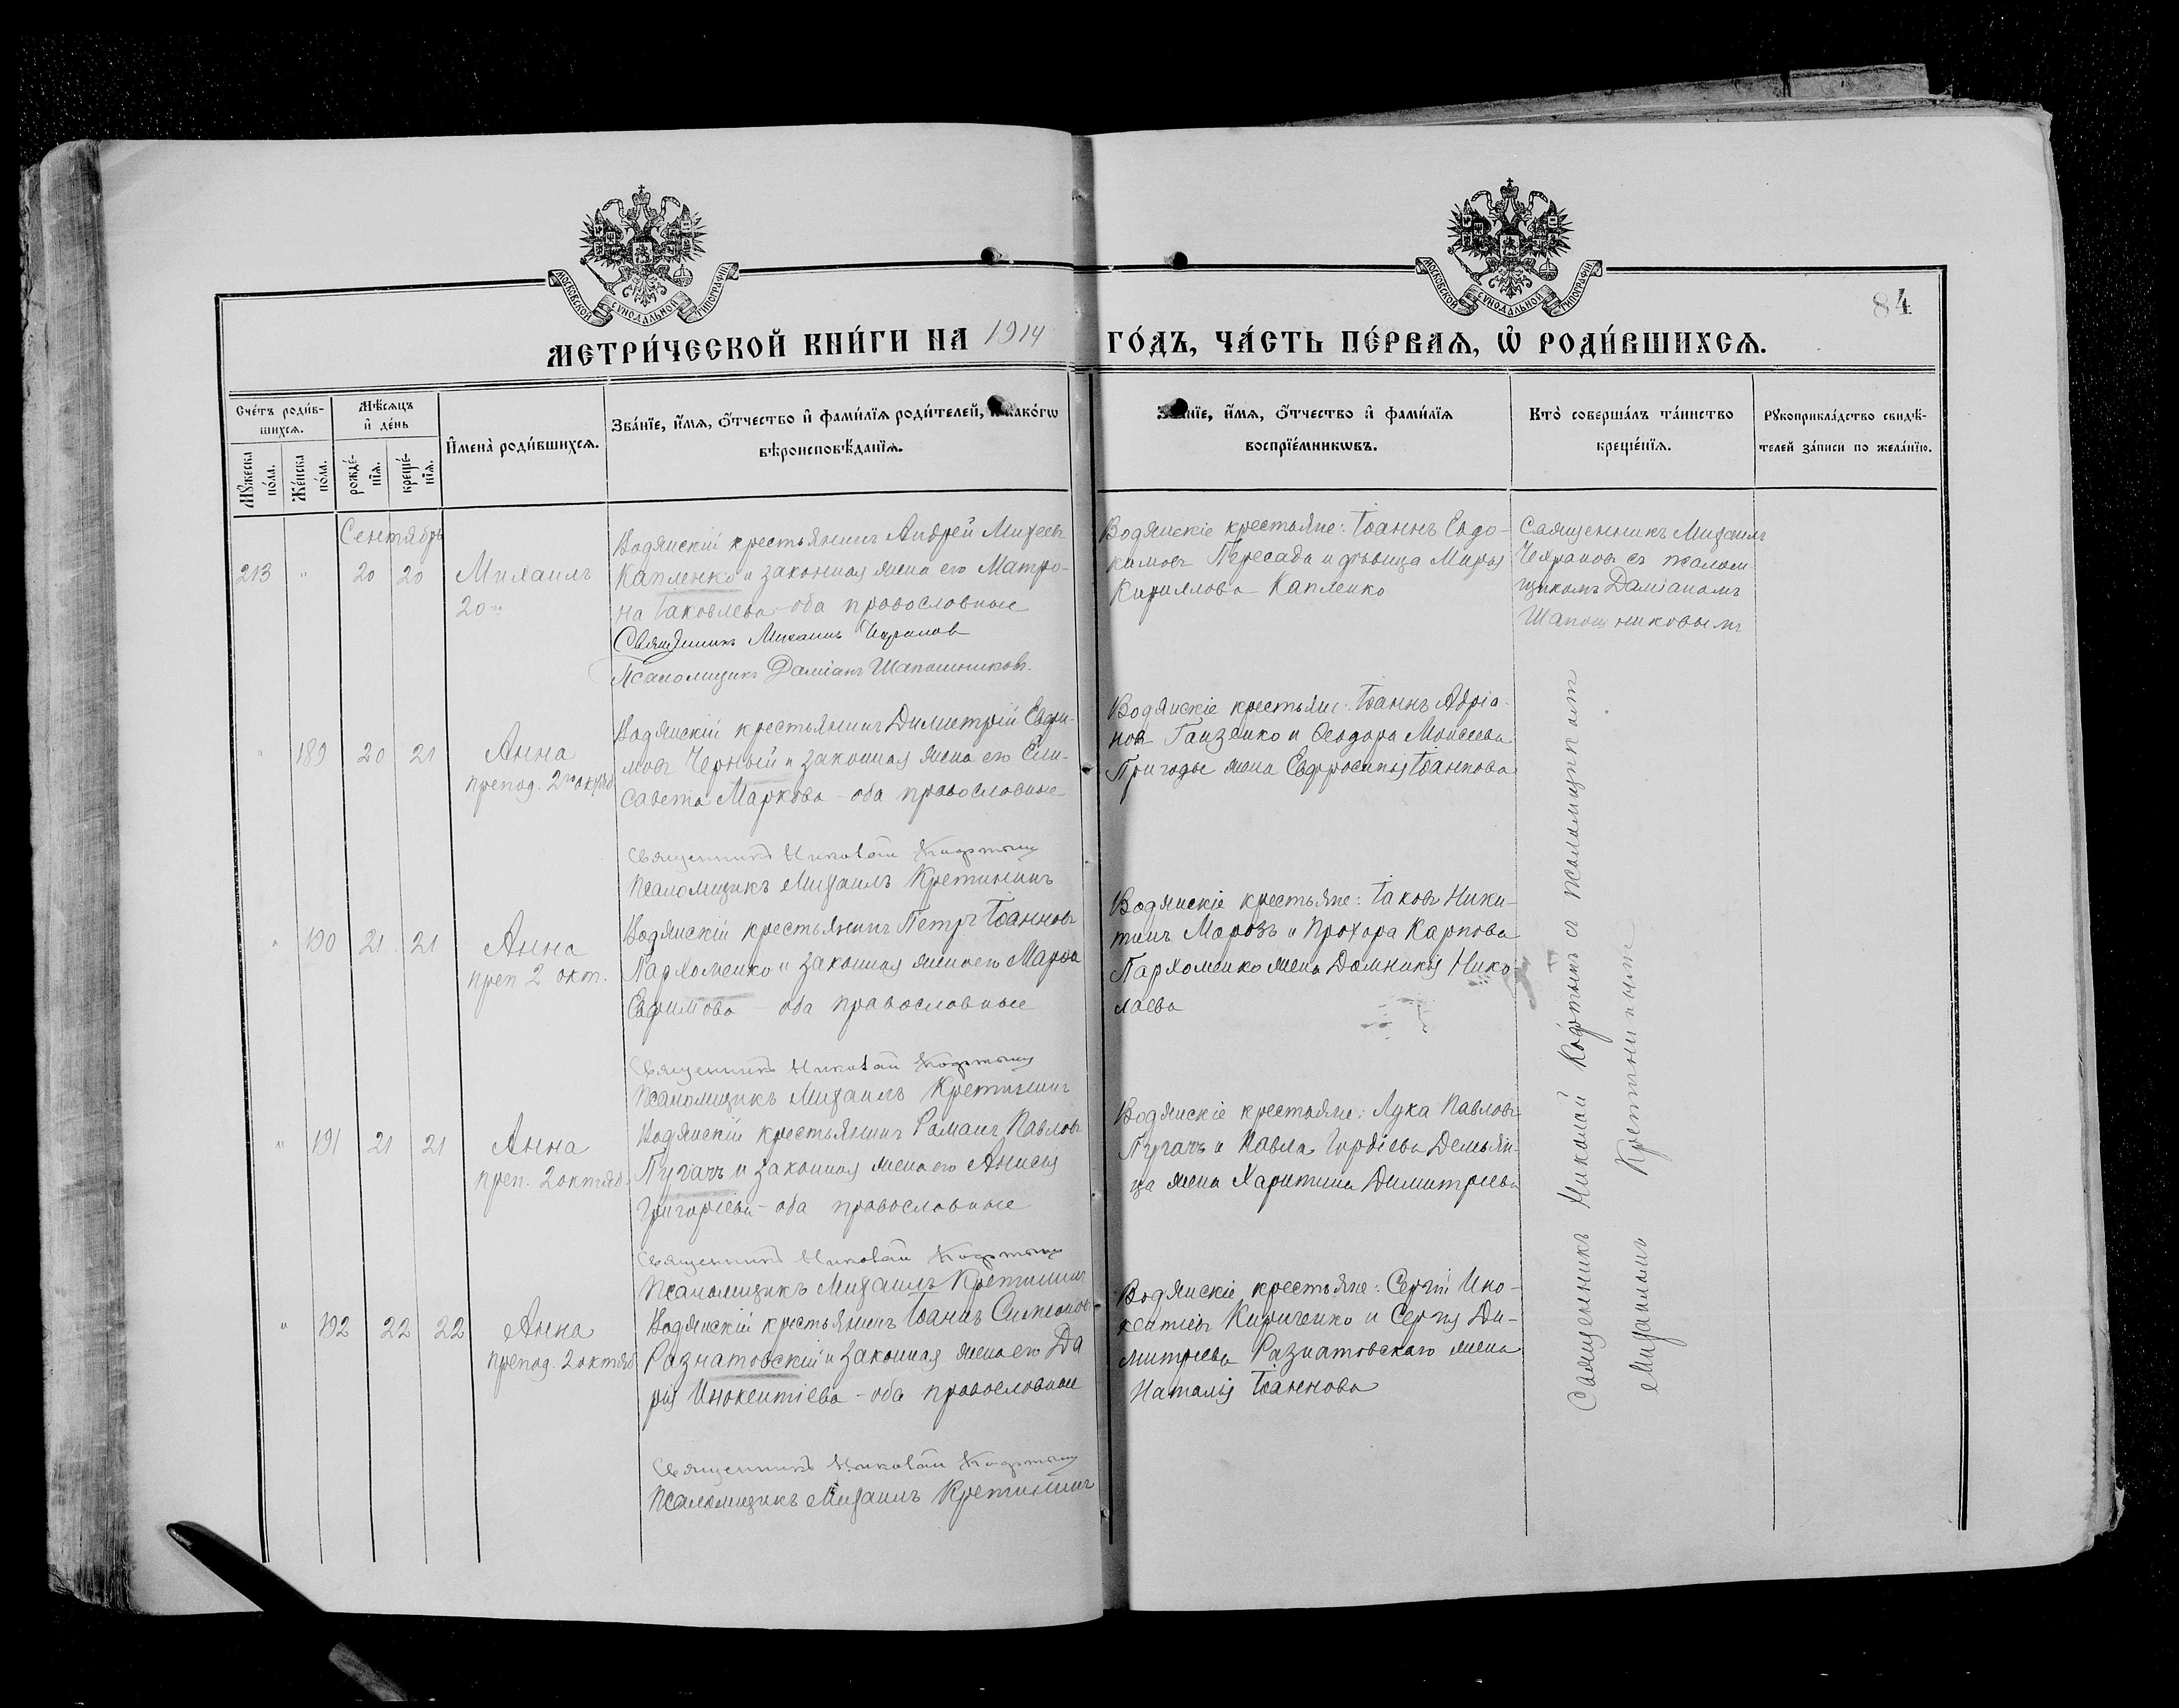 МОСКОВСКОЙ СѴНОДАЛЬНОЙ ТИПОГРАФІИ
МОСКОВСКОЙ СѴНОДАЛЬНОЙ ТИПОГРАФІИ
84
МЕТРИ́ЧЕСКОЙ КНИ́ГИ НА 1914 ГО́ДЪ, ЧА́СТЬ ПЕ́РВАѦ, Ѡ҆ РОДИ́ВШИХСѦ.
Сче́тъ роди́в-
шихсѧ.
Мꙋ́жеска по́ла.
Же́нска по́ла.
Мѣ́сѧцъ
и҆ де́нь
рожде́-
нїѧ.
креще́-
нїѧ.
И҆мена̀ роди́вшихсѧ.
Зва́нїе, и҆́мѧ, ѻ҆́тчество и҆ фами́лїѧ роди́телей, и҆ како́гѡ
вѣроисповѣ́данїѧ.
Зва́нїе, и҆́мѧ, ѻ҆́тчество и҆ фами́лїѧ
воспрїе́мникѡвъ.
Кто̀ соверша́лъ та́инство
креще́нїѧ.
Рꙋкоприкла́дство свидѣ́-
телей за́писи по жела́нїю.
Сентябрь
213 " 20 20 Михаилъ
20го
Водянскій крестьянинъ Андрей Михеевъ
Капленко и законная жена его Матро-
на Іаковлева - оба православные
Священникъ Михаилъ
Псаломщикъ Даміанъ Шапошниковъ.
Водянскіе крестьяне: Іоаннъ Евдо-
кимовъ Пересада и дѣвица Марія
Кириллова Капленко
Священникъ Михаилъ
съ псалом-
щикомъ Даміаномъ
Шапошниковымъ
" 189 20 21 Анна
препод. 2го октяб
Водянскій крестьянинъ Димитрій Ефи-
мовъ Черный и законная жена его Ели-
савета Маркова - оба православные
Священникъ Николай Кофтынъ
Псаломщикъ Михаилъ Кретининъ
Водянскіе крестьяне: Іоаннъ Адріа-
новъ Ганзенко и Ѳеодора Моисеева
Пригоды жена Евфросинія Іоаннова
" 190 21 21 Анна
преп 2 окт.
Водянскій крестьянинъ Петръ Іоанновъ
Пархоменко и законная жена его Марѳа
Ефимова - оба православные
Священникъ Николай Кофтынъ
Псаломщикъ Михаилъ Кретининъ
Водянскіе крестьяне: Іаковъ Ники-
тинъ Морозъ и Прохора Карпова
Пархоменко жена Домникія Нико-
лаева
" 191 21 21 Анна
преп. 2 октяб.
Водянскій крестьянинъ Романъ Павловъ
Пугачъ и законная жена его Анисія
Григоріева - оба православные
Священникъ Николай Кофтынъ
Псаломщикъ Михаилъ Кретининъ
Водянскіе крестьяне: Лука Павловъ
Пугачъ и Павла Гордіева Демьян-
ца жена Харитина Димитріева
" 192 22 22 Анна
препод. 2 октяб
Водянскій крестьянинъ Іоаннъ Симеоновъ
Разнатовскій и законная жена его Да
рія Инокентіева - оба православные
Священникъ Николай Кофтынъ
Псаломщикъ Михаилъ Кретининъ
Водянскіе крестьяне: Сергій Ино-
кентіевъ Кириченко и Сергія Ди-
митріева Разнатовскаго жена
Наталія Іоаннова
Священникъ Николай Кофтынъ съ псаломщикомъ
Михаиломъ Кретининымъ